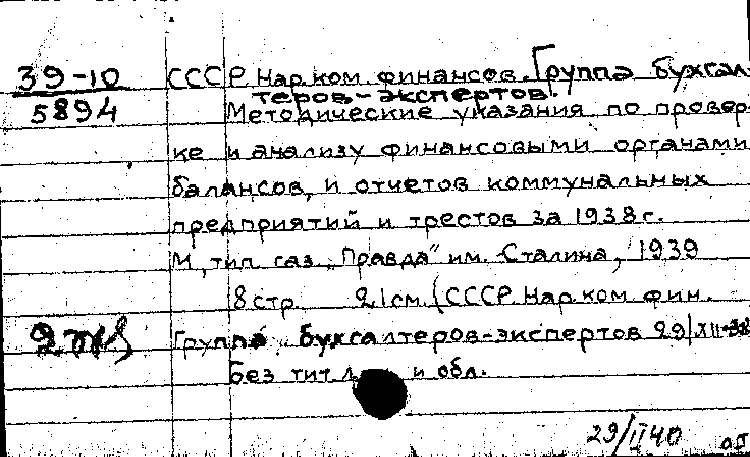 39-10 СССР. Нар.ком. финансов. Группа бухгал-
теров-экспертов.
5894 Методические указания по провер-
ке и анализу финансовыми органами
балансов, и отчетов коммунальных
предприятий и трестов за 1938 г.
М, тип. газ. „Правда" им. Сталина, 1939
8 стр. 21 см. (СССР. Нар.ком.фин.
Группа бухгалтеров-экспертов 29/XII-38
Без тит. л. и обл.
29/II 40